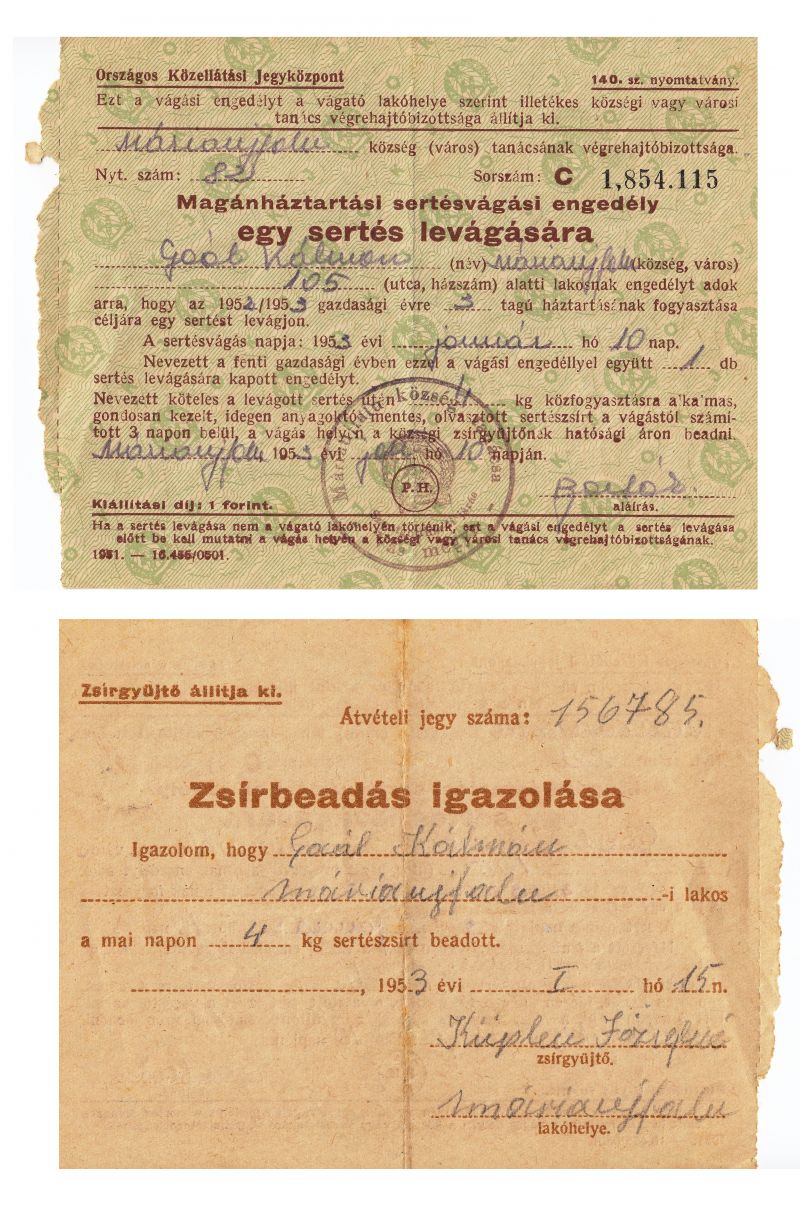 Országos Közellátási Jegyközpont 140. sz. nyomtatvány.
Ezt a vágási engedélyt a vágató lakóhelye szerint illetékes községi vagy városi
tanács végrehajtóbizottsága állítja ki.
Máriaujfalu község (város) tanácsának végrehajtóbizottsága.
Nyt. szám: 82 Sorszám: C 1,854.115
Magánháztartási sertésvágási engedély
egy sertés levágására
Gaál Kálmán (név) Máriaujfalu (község, város)
105 (utca, házszám) alatti lakosnak engedélyt adok
arra, hogy az 1952/1953 gazdasági évre 3 tagú háztartásának fogyasztása
céljára egy sertést levágjon.
A sertésvágás napja: 1953 évi január hó 10 nap.
Nevezett a fenti gazdasági évben ezzel a vágási engedéllyel együtt 1 db
sertés levágására kapott engedélyt.
Nevezett köteles a levágott sertés után 4 kg közfogyasztásra a'ka'mas,
gondosan kezelt, idegen anyagoktól mentes, olvasztott sertészsírt a vágástól számí-
tott 3 napon belül, a vágás helyén a községi zsírgyüjtőnek hatósági áron beadni.
Máriaujfalu 1953 évi jan hó 10 napján.
P.H.
Kiállítási díj: 1 forint. aláírás.
Ha a sertés levágása nem a vágató lakóhelyén történik, ezt a vágási engedélyt a sertés levágása
előtt be kell mutatni a vágás helyén a községi vagy városi tanács végrehajtóbizottságának.
1951. — 16.455/0501.
Zsírgyüjtő állítja ki.
Átvételi jegy száma: 156785.
Zsírbeadás igazolása
Igazolom, hogy Gaál Kálmán
Máriaujfalu -i lakos
a mai napon 4 kg sertészsírt beadott.
, 1953 évi I hó 15 n.
Küplen Józsefné
zsírgyüjtő.
Máriaujfalu
lakóhelye.